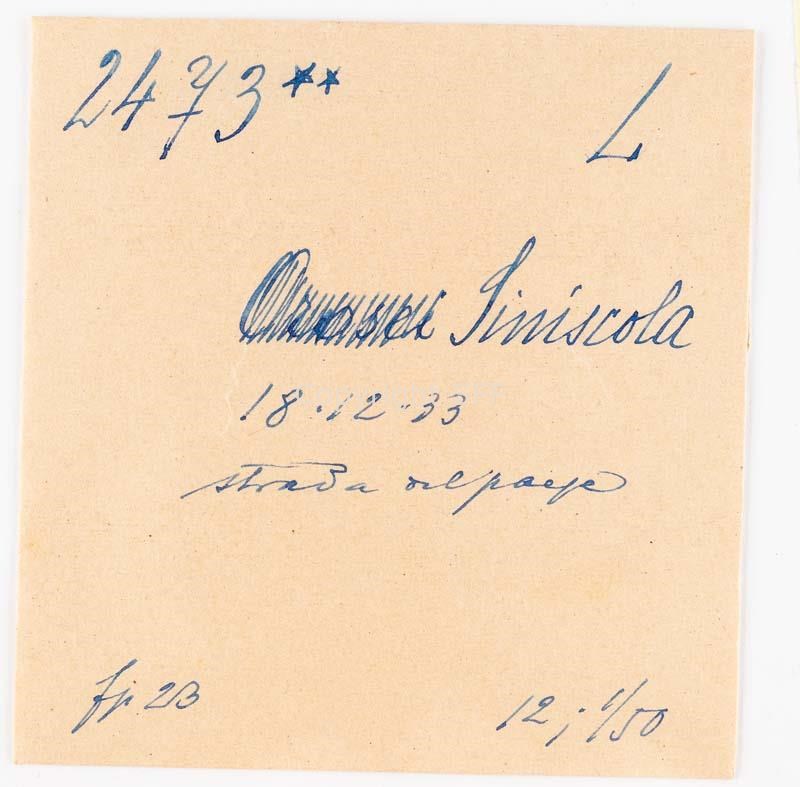 2473** L
Orosei Siniscola
18.12.33
strada nel paese
fp 23
12; 1/50